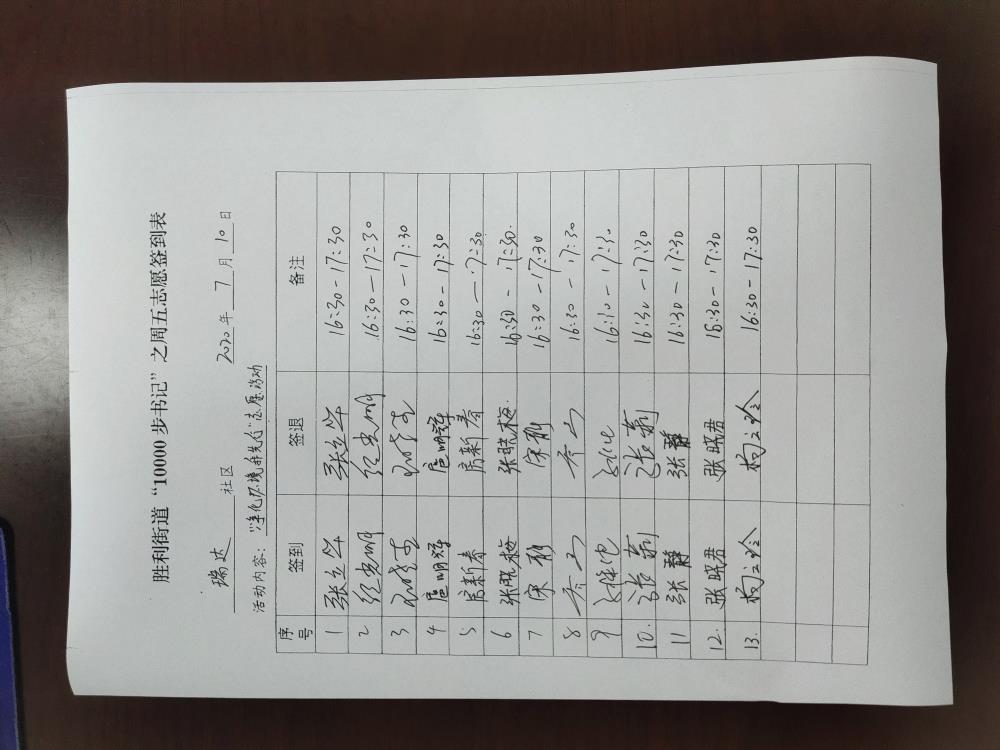 胜利街道“10000步书记”之周五志愿签到表
瑞达 社区 2020年 7月 10日
活动内容：“净化环境 我先行”志愿活动
序号 签到 签退 备注
1 张立华 张立华 16:30-17:30
2 16:30-17:30
3 16:30-17:30
4 扈明辉 扈明辉 16:30-17:30
5 房新春 房新春 16:30-17:30
6 张晓梅 张晓梅. 16:30-17:30.
7 宋彩 宋彩 16:30-17:30
8 乔山 乔山 16:30-17:30
9 16:30-17:30
10. 张莉 张莉 16:30-17:30
11 张静 张静 16:30-17:30
12. 张晓君 张晓君 16:30-17:30
13. 杨立玲 杨立玲 16:30-17:30